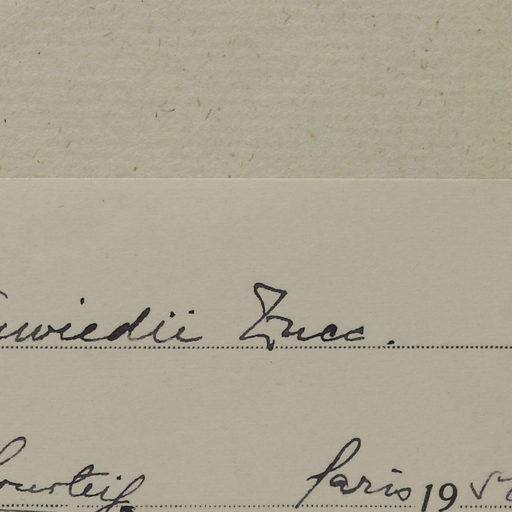 uwiedii Zucc.
Courteif. Paris 195